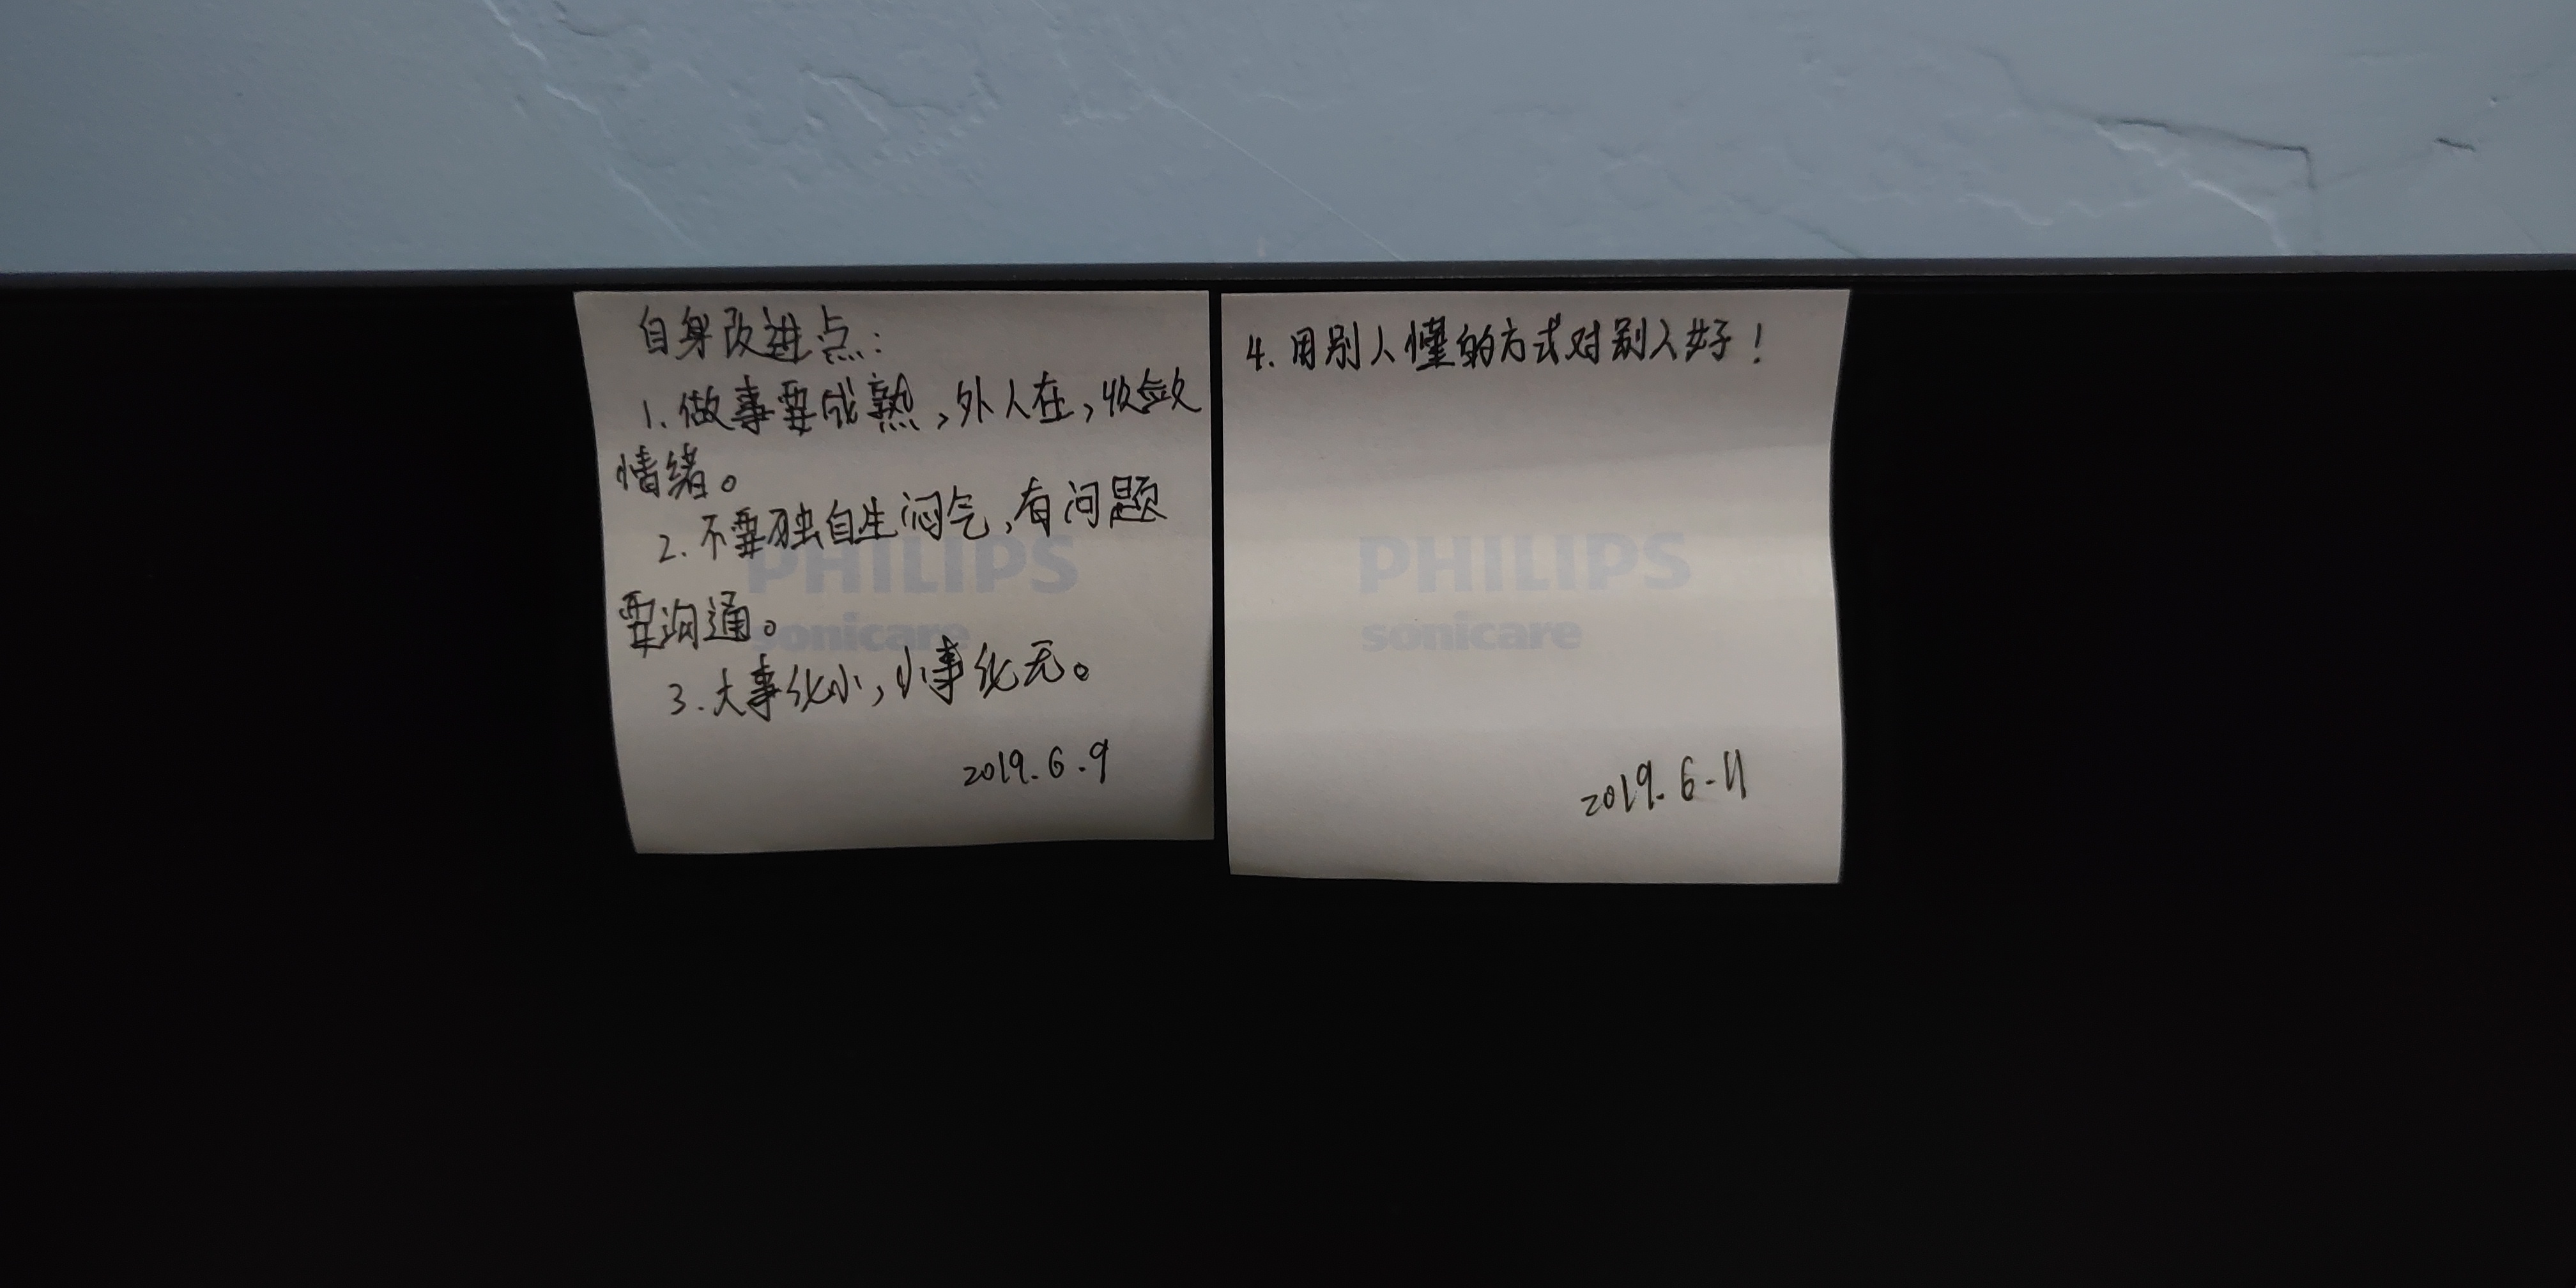 自身改进点：
1. 做事要成熟，外人在，收敛
情绪。
2. 不要独自生闷气，有问题
要沟通。
3. 大事化小，小事化无。
2019.6.9
PHILIPS
sonicare
4. 用别人懂的方式对别人好！
PHILIPS
sonicare
2019.6-11